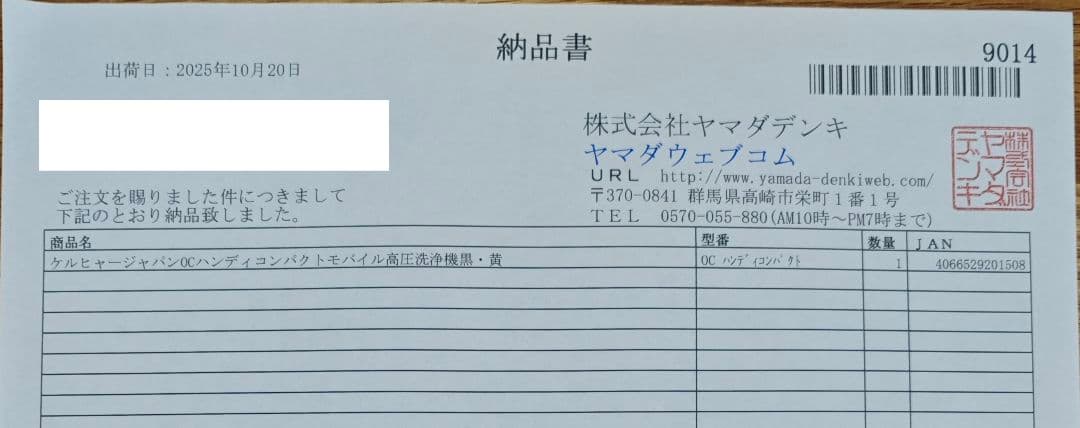 納品書
9014
出荷日：2025年10月20日
株式会社ヤマダデンキ
ヤマダウェブコム
URL http://www.yamada-denkiweb.com/
〒370-0841 群馬県高崎市栄町1番1号
TEL 0570-055-880(AM10時～PM7時まで)
株式会社ヤマダデンキ
ご注文を賜りました件につきまして
下記のとおり納品致しました。
商品名 型番 数量 JAN
ケルヒャージャパンOCハンディコンパクトモバイル高圧洗浄機黒・黄 OC ﾊﾝﾃﾞｨｺﾝﾊﾟｸﾄ 1 4066529201508